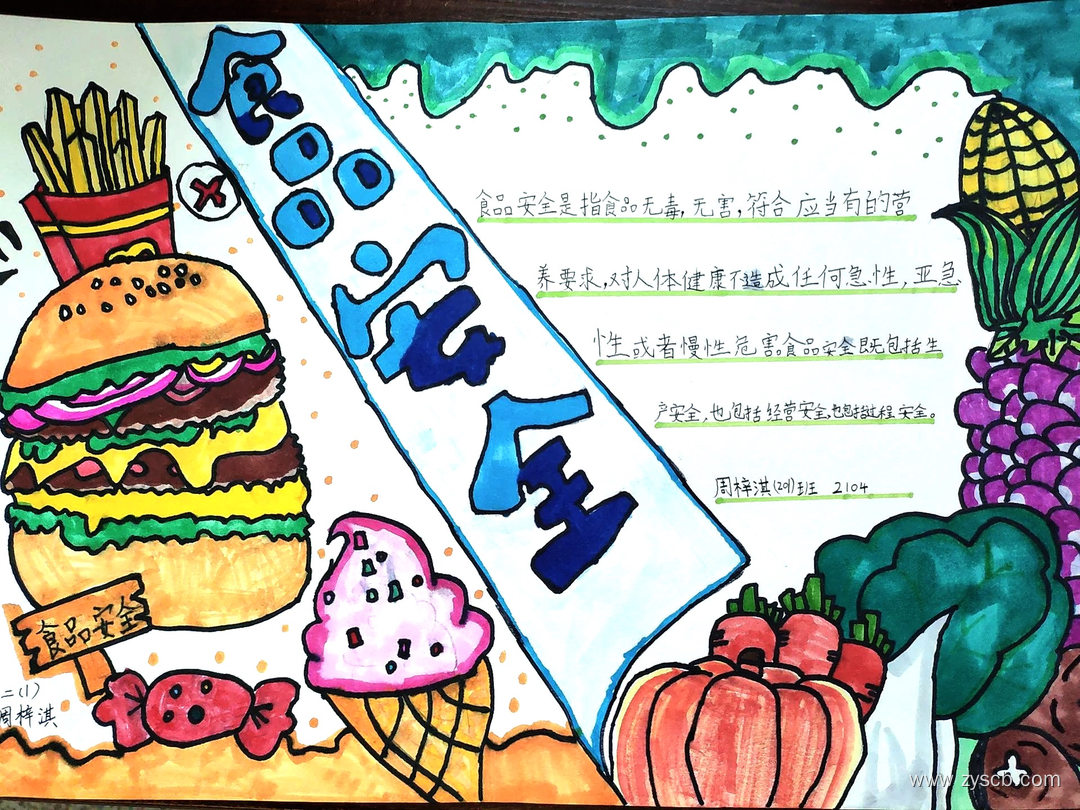 食品安全
食品安全是指食品无毒,无害,符合应当有的营
养要求,对人体健康不造成任何急性,亚急
性或者慢性危害食品安全既包括生
产安全,也包括经营安全,也包括过程安全。
周梓淇(201)班 2104
食品安全
二(1)
周梓淇
www.zyscb.com